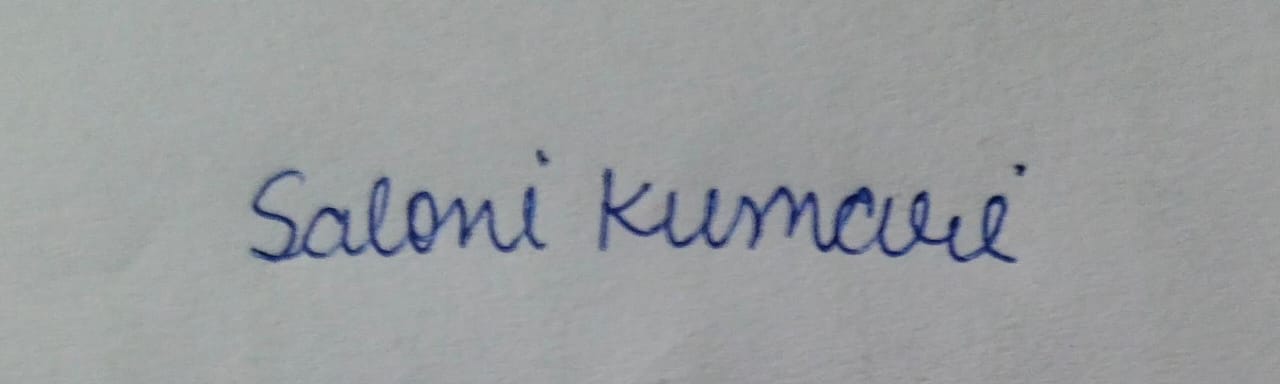 Saloni Kumari